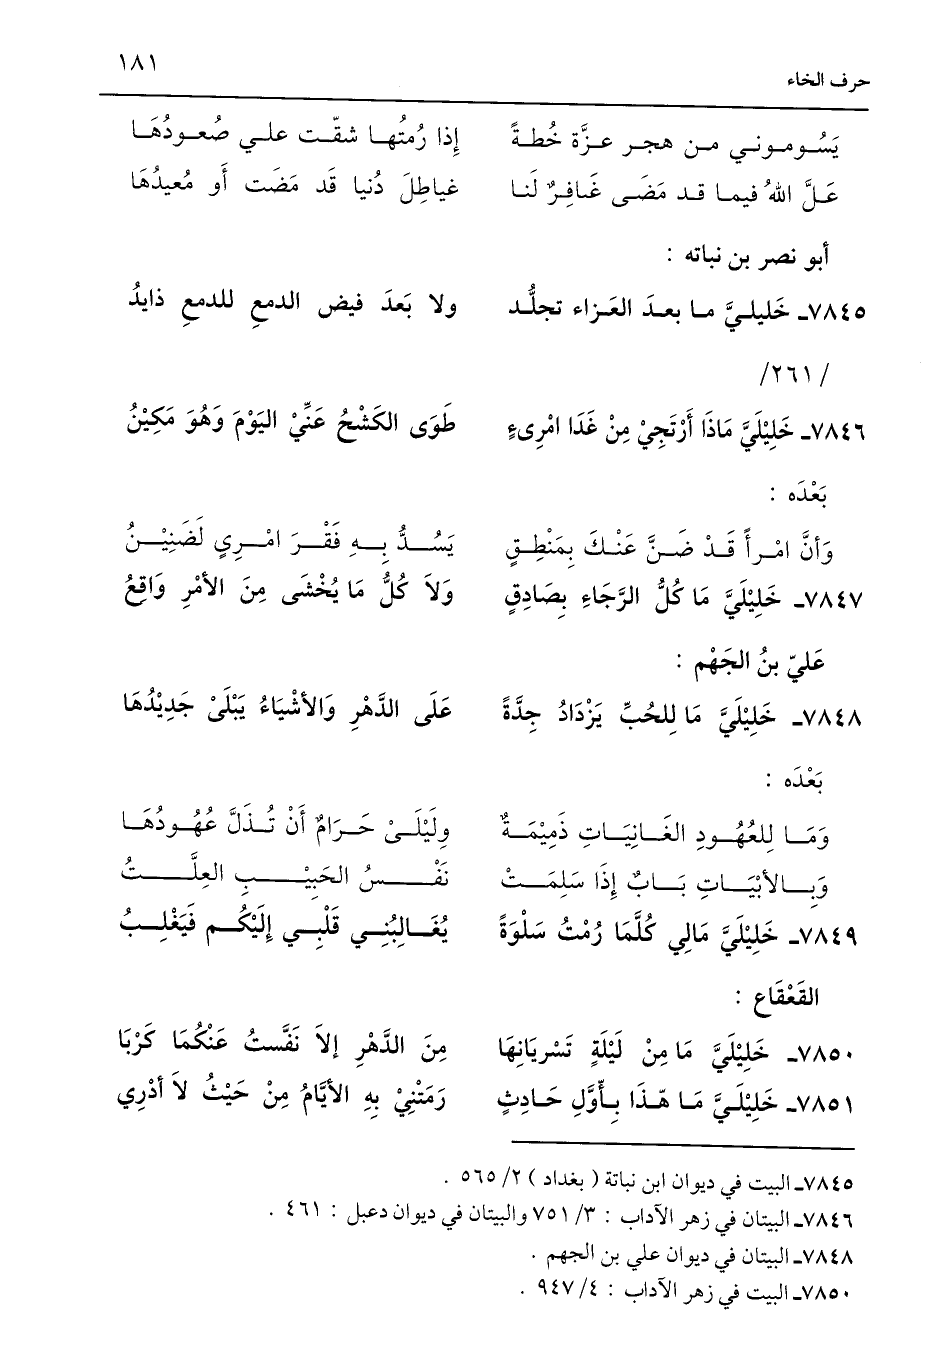 ١٨١
حرف الخاء
يَسُومونـي مـن هـجـر عـزَّة خُطـةً إذا رُمتُهـا شقّـت علـي صُعـودُهَـا
عَـلَّ اللهُ فيمـا قـد مَضَـى غَـافِـرٌ لَنـا غياطِلَ دُنيا قَد مَضَت أو مُعيدُهَا
أبو نصر بن نباته :
٧٨٤٥ـ خَليلـيَّ مـا بعـدَ العَـزاء تجلُّـد ولا بَعدَ فيض الدمعِ للدمعِ ذايدُ
/٢٦١/
٧٨٤٦ـ خَلِيْلَيَّ مَاذَا أَرْتَجِيْ مِنْ غَدَا امْرِىءٍ طَوَى الكَشْحُ عَنِّيْ اليَوْمَ وَهُوَ مَكِيْنُ
بَعْدَه :
وَأنَّ امْـرأً قَـدْ ضَـنَّ عَنْـكَ بِمَنْطِـقٍ يَسُـدُّ بِـهِ فَقْـرَ امْـرِي لَضَنِيْـنُ
٧٨٤٧ـ خَلِيْلَيَّ مَا كُلُّ الرَّجَاءِ بِصَادِقٍ وَلاَ كُلُّ مَا يُخْشَى مِنَ الأمْرِ وَاقِعُ
عَليّ بنُ الجَهْم :
٧٨٤٨ـ خَلِيْلَيَّ مَا لِلحُبِّ يَزْدَادُ جِدَّةً عَلَى الدَّهْرِ وَالأشْيَاءُ يَبْلَىْ جَدِيْدُهَا
بَعْدَه :
وَمَـا لِلعُهُـودِ الغَـانِيَـاتِ ذَمِيْمَـةٌ وِلَيْلَـىْ حَـرَامٌ أَنْ تُـذَلَّ عُهُـودُهَـا
وَبِـالأبْيَـاتِ بَـابٌ إذَا سَلِمَـتْ نَفْـسُ الحَبِيْـبِ العِلَّـتُ
٧٨٤٩ـ خَلِيْلَيَّ مَالِي كُلَّمَا رُمْتُ سَلْوَةً يُغَـالِبُنِـي قَلْبِـي إِلَيْكُـم فَيَغْلِـبُ
القَعْقَاع :
٧٨٥٠ـ خَلِيْلَيَّ مَا مِنْ لَيْلَةٍ تَسْرِيَانِهَا مِنَ الدَّهْرِ إلاَ نَفَّستُ عَنْكُمَا كَرْبَا
٧٨٥١ـ خَلِيْلَيَّ مَـا هَـذَا بِـأوَّلِ حَـادِثٍ رَمَتْنِيْ بِهِ الأيَّامُ مِنْ حَيْثُ لاَ أدْرِي
٧٨٤٥ـ البيت في ديوان ابن نباتة ( بغداد ) ٢/ ٥٦٥ .
٧٨٤٦ـ البيتان في زهر الآداب : ٣/ ٧٥١ والبيتان في ديوان دعبل : ٤٦١ .
٧٨٤٨ـ البيتان في ديوان علي بن الجهم .
٧٨٥٠ـ البيت في زهر الآداب : ٤/ ٩٤٧ .